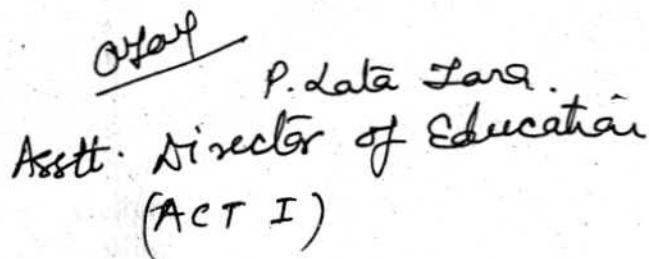 P. Lata Tara.
Asstt. Director of Education
(ACT I)